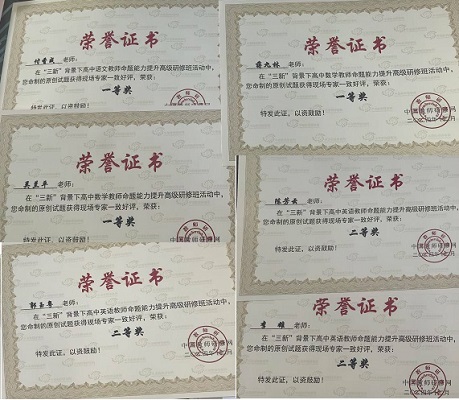 荣誉证书
老师：
在“三新”背景下高中语文教师命题能力提升高级研修班活动中，
您命制的原创试题获得现场专家一致好评，荣获：
一等奖
特发此证，以资鼓励！
荣誉证书
老师：
在“三新”背景下高中数学教师命题能力提升高级研修班活动中，
您命制的原创试题获得现场专家一致好评，荣获：
一等奖
特发此证，以资鼓励！
荣誉证书
老师：
在“三新”背景下高中数学教师命题能力提升高级研修班活动中，
您命制的原创试题获得现场专家一致好评，荣获：
一等奖
特发此证，以资鼓励！
荣誉证书
陈芳云 老师：
在“三新”背景下高中英语教师命题能力提升高级研修班活动中，
您命制的原创试题获得现场专家一致好评，荣获：
二等奖
特发此证，以资鼓励！
荣誉证书
老师：
在“三新”背景下高中英语教师命题能力提升高级研修班活动中，
您命制的原创试题获得现场专家一致好评，荣获：
二等奖
特发此证，以资鼓励！
荣誉证书
李 老师：
在“三新”背景下高中英语教师命题能力提升高级研修班活动中，
您命制的原创试题获得现场专家一致好评，荣获：
二等奖
特发此证，以资鼓励！